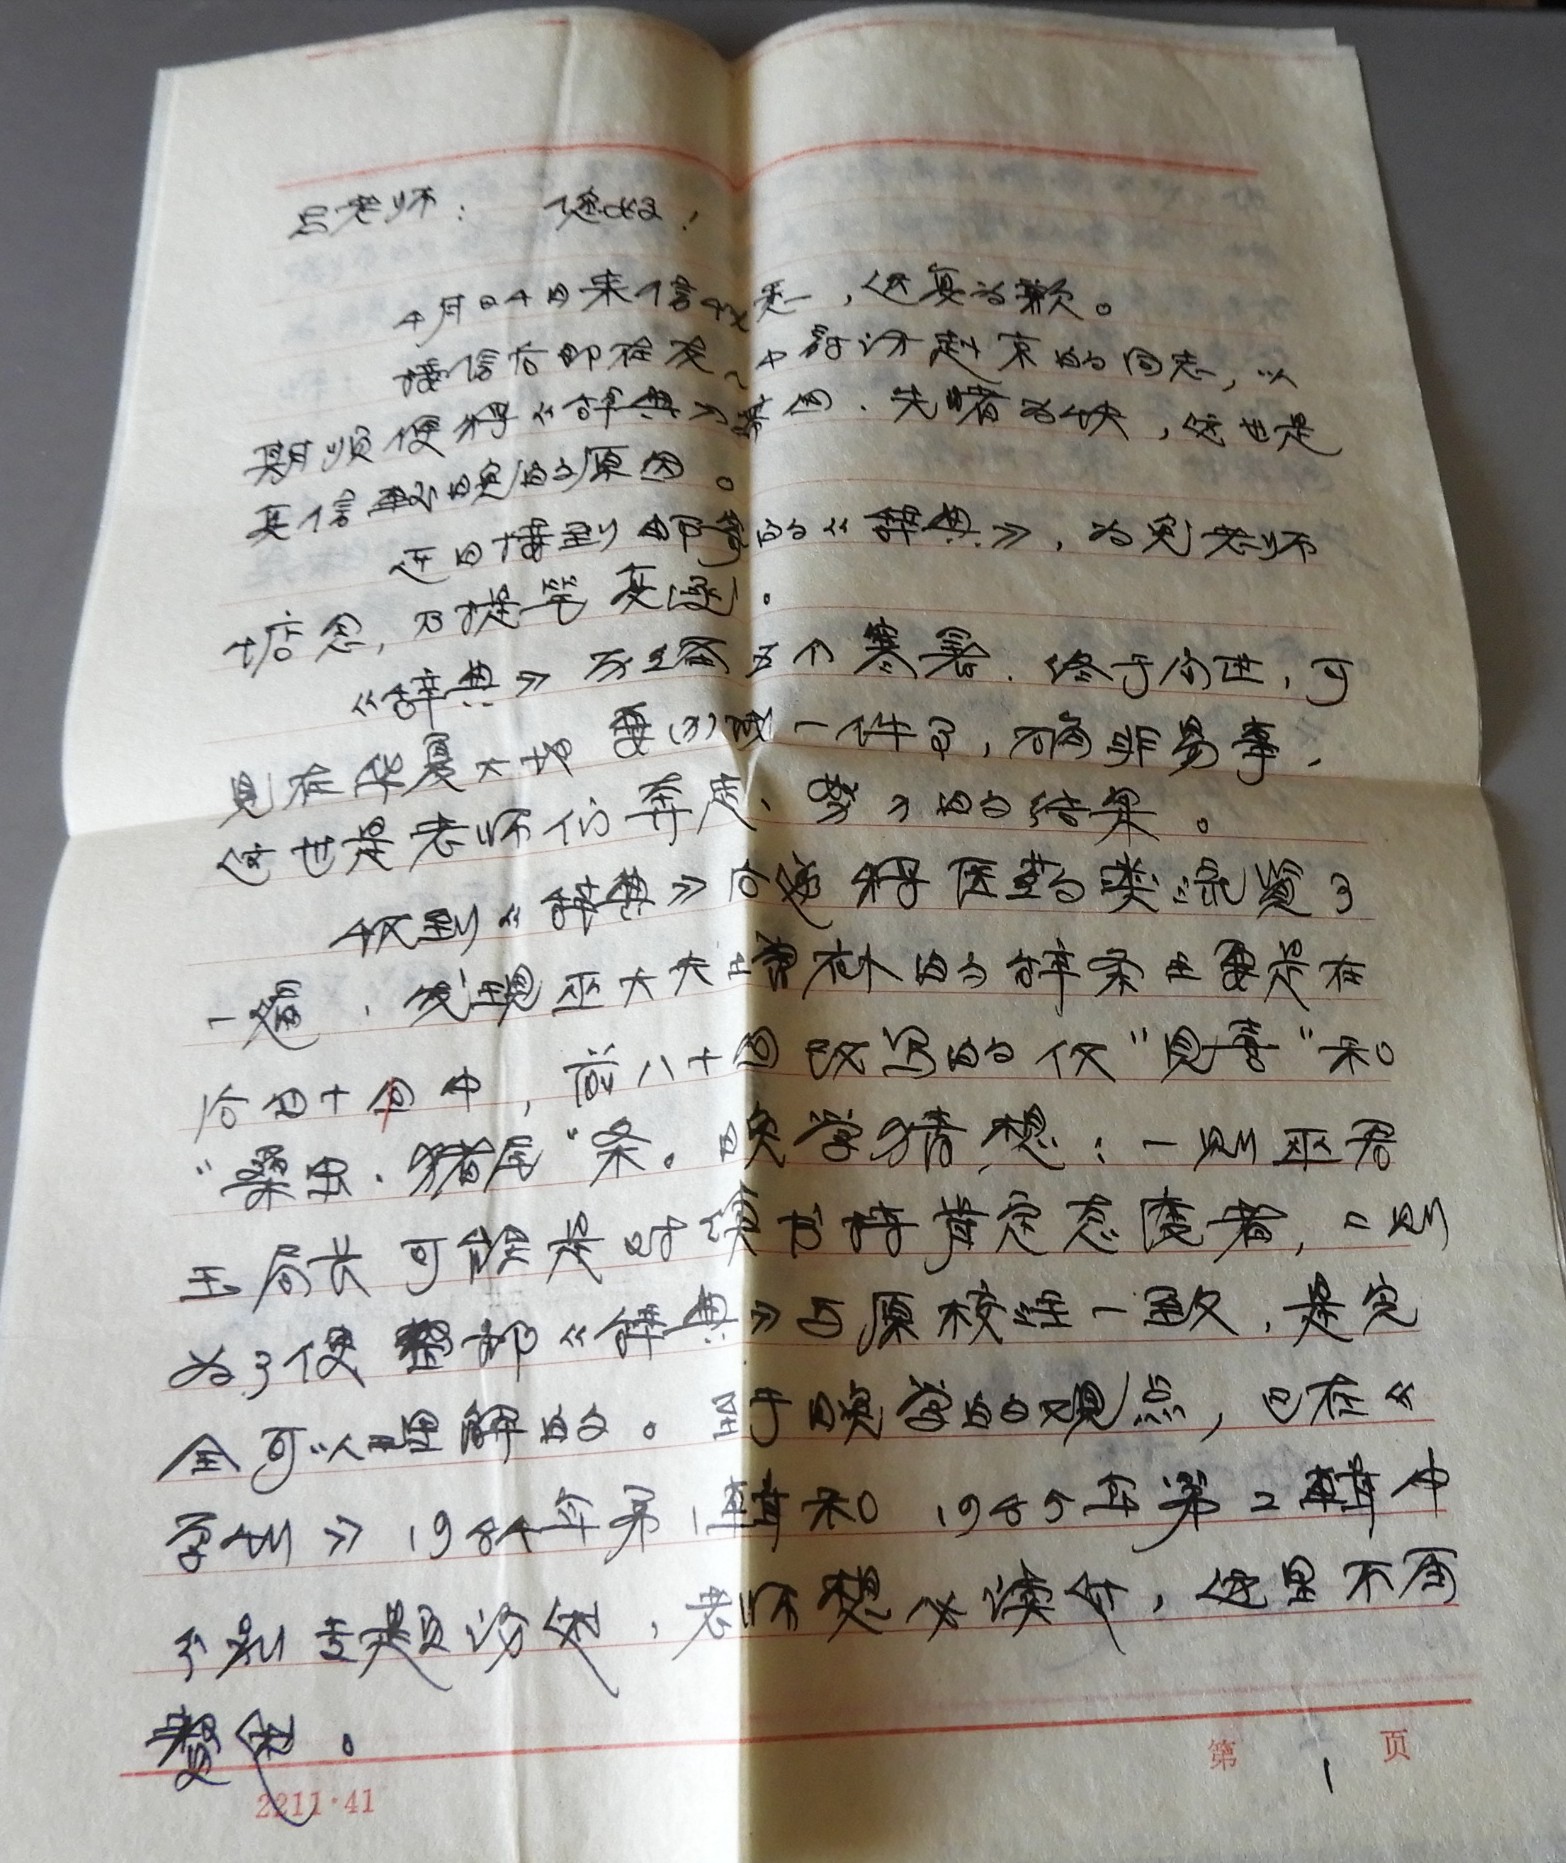 吕老师： 您好！
4月24日来信收悉，迟复为歉。
接信后即在友人中寻访赴京的同志，以
期顺便将《辞典》带回，先睹为快，这也是
复信较晚的原因。
近日接到邮寄的《辞典》，为免老师
惦念，乃提笔复函。
《辞典》历经五个寒暑，终于问世，可
见在华夏大地要办成一件事，确非易事，
这也是老师们奔走、努力的结果。
收到《辞典》后遂将医药类浏览了
一遍，发现巫大夫增补的辞条主要是在
后四十回中，前八十回改写的仅“见喜”和
“桑虫、猪尾”条。晚学猜想：一则巫君
玉局长可能是对续书持肯定态度者，二则
为了使整部《辞典》与原校注一致，是完
全可以理解的。至于晚学的观点，已在《
学刊》1984年第1辑和1985年第2辑中
分别专题论述，老师想必读什，这里不再
赘述。
第1页
2211·41